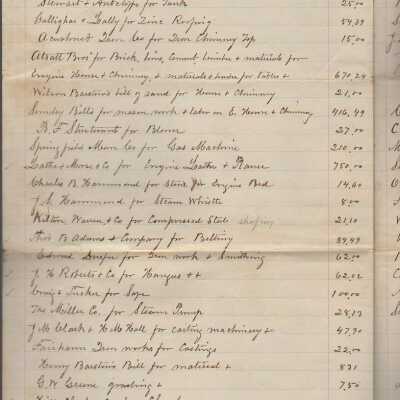 Stewart & Antclife for Tank 25.00
Ballighan & Lally for Zinc Roofing 54.39
Acushnet Iron Co for Iron Chimney Top 15.00
Atsatt Bros for Brick, lime, cement lumber & materials for
Engine House & Chimney, & materials & 671.24
Wilson Barstow's bill of sand for House & Chimney 21.00
Sundry Bills for mason work & labor on E. House & Chimney 416.49
B. F. Sturtevant for Blower 27.00
Springfield Mcm Co for Gas Machine 210.00
Lathe & Morse & Co for Engine Lathe & Planer 750.00
Charles B Hammond for Stone for Engine Bed 14.60
J. W. Hammond for Steam Whistle 8.00
Wilton Waren & Co for Compressed Steel shafting 21.10
Thos B Adams & Company for Belting 89.49
Edward for Iron work & Smithing 62.00
J. H Roberts & Co for Hangers & & 62.02
Craig & Tucker for Safe 100.00
The Miller Co. for Steam Pump 28.13
J. M Clark & H. M. Hall for casting machinery & 47.30
Fairhaven Iron works for Castings 22.00
Henry Barstow's Bill for material & 8.31
G. W Greene & 7.50